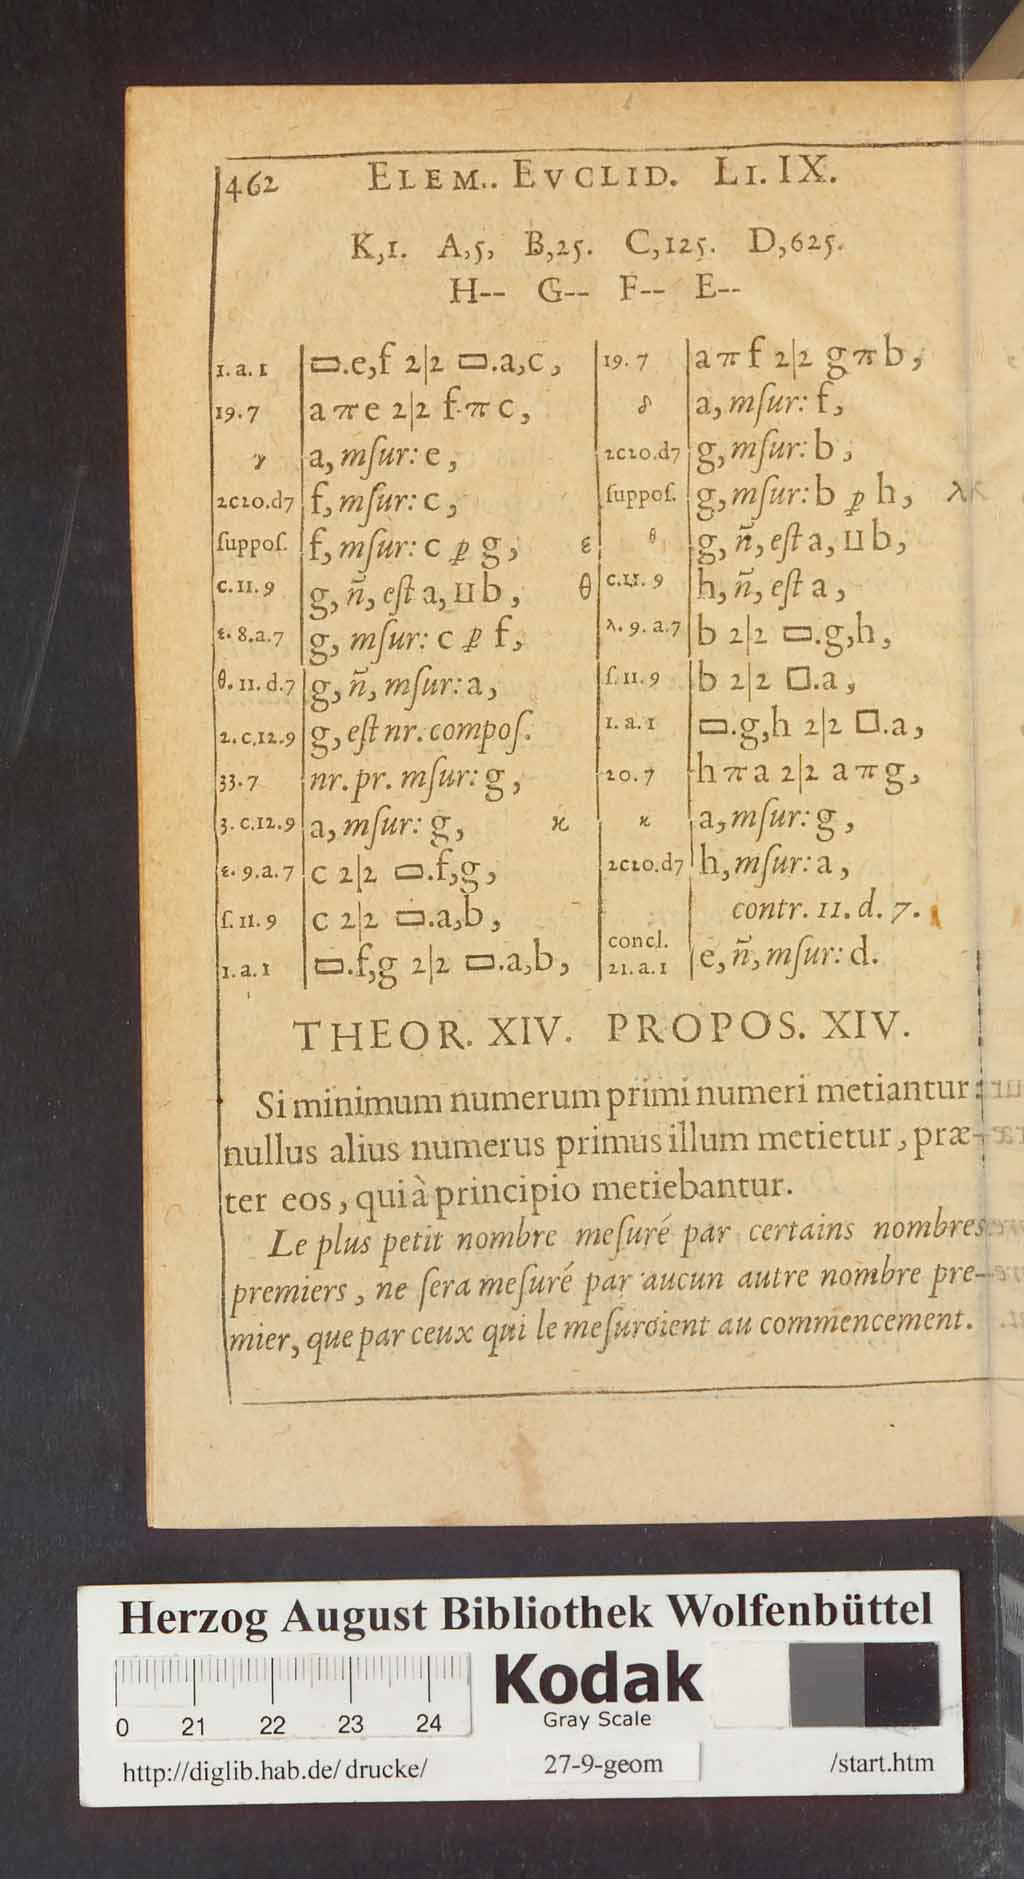 462 ELEM.. EVCLID. LI. IX.
K,1. A,5, B,25. C,125. D,625.
H-- G-- F-- E--
1. a. 1 ▭.e,f 2|2 ▭.a,c,
19. 7 a π e 2|2 f π c,
γ a, mſur: e,
2c20.d7 f, mſur: c,
ſuppoſ. f, mſur: c ꝑ g, ε
c. 11. 9 g, ñ, eſt a, ⊔ b, θ
ε. 8. a. 7 g, mſur: c ꝑ f,
θ. 11. d. 7 g, ñ, mſur: a,
2. c. 12. 9 g, eſt nr. compoſ.
33. 7 nr. pr. mſur: g,
3. c. 12. 9 a, mſur: g, ϰ
ε. 9. a. 7 c 2|2 ▭.f,g,
ſ. 11. 9 c 2|2 ▭.a,b,
1. a. 1 ▭.f,g 2|2 ▭.a,b,
19. 7 a π f 2|2 g π b,
δ a, mſur: f,
2c20.d7 g, mſur: b,
ſuppoſ. g, mſur: b ꝑ h, λ
θ g, ñ, eſt a, ⊔ b,
c. 11. 9 h, ñ, eſt a,
λ. 9. a. 7 b 2|2 ▭.g,h,
ſ. 11. 9 b 2|2 □.a,
1. a. 1 ▭.g,h 2|2 □.a,
20. 7 h π a 2|2 a π g,
ϰ a, mſur: g,
2c20.d7 h, mſur: a,
contr. 11. d. 7.
concl.
21. a. 1 e, ñ, mſur: d.
THEOR. XIV. PROPOS. XIV.
Si minimum numerum primi numeri metiantur:
nullus alius numerus primus illum metietur, præ-
ter eos, qui à principio metiebantur.
Le plus petit nombre meſuré par certains nombres
premiers, ne ſera meſuré par aucun autre nombre pre-
mier, que par ceux qui le meſuroient au commencement.
Herzog August Bibliothek Wolfenbüttel
Kodak
Gray Scale
0 21 22 23 24
http://diglib.hab.de/drucke/ 27-9-geom /start.htm